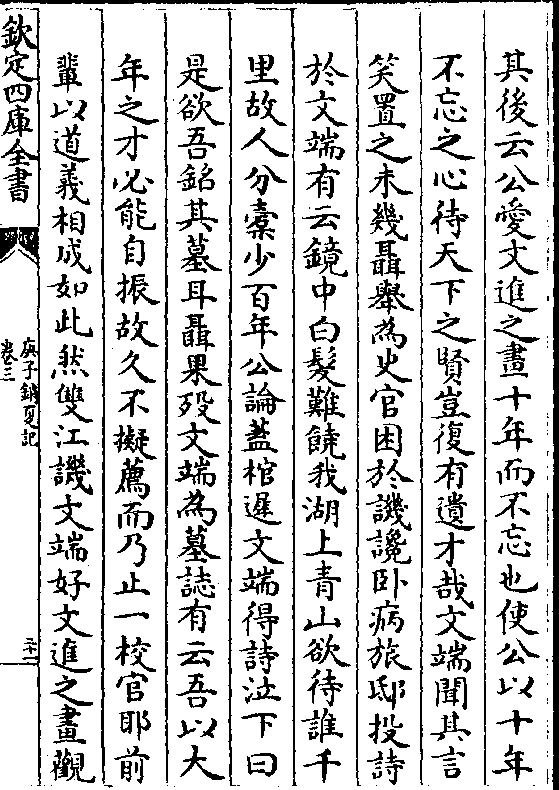 其後云公愛文進之畫十年而不忘也使公以十年
不忘之心待天下之賢豈復有遺才哉文端聞其言
笑置之未幾聶舉為史官困於譏讒卧病旅邸投詩
於文端有云鏡中白髮難饒我湖上青山欲待誰千
里故人分橐少百年公論蓋棺遲文端得詩泣下曰
是欲吾銘其墓耳聶果殁文端為墓誌有云吾以大
年之才必能自振故久不擬薦而乃止一校官耶前
輩以道義相成如此然雙江譏文端好文進之畫觀
欽定四庫全書
庚子銷夏記
卷三
二十一